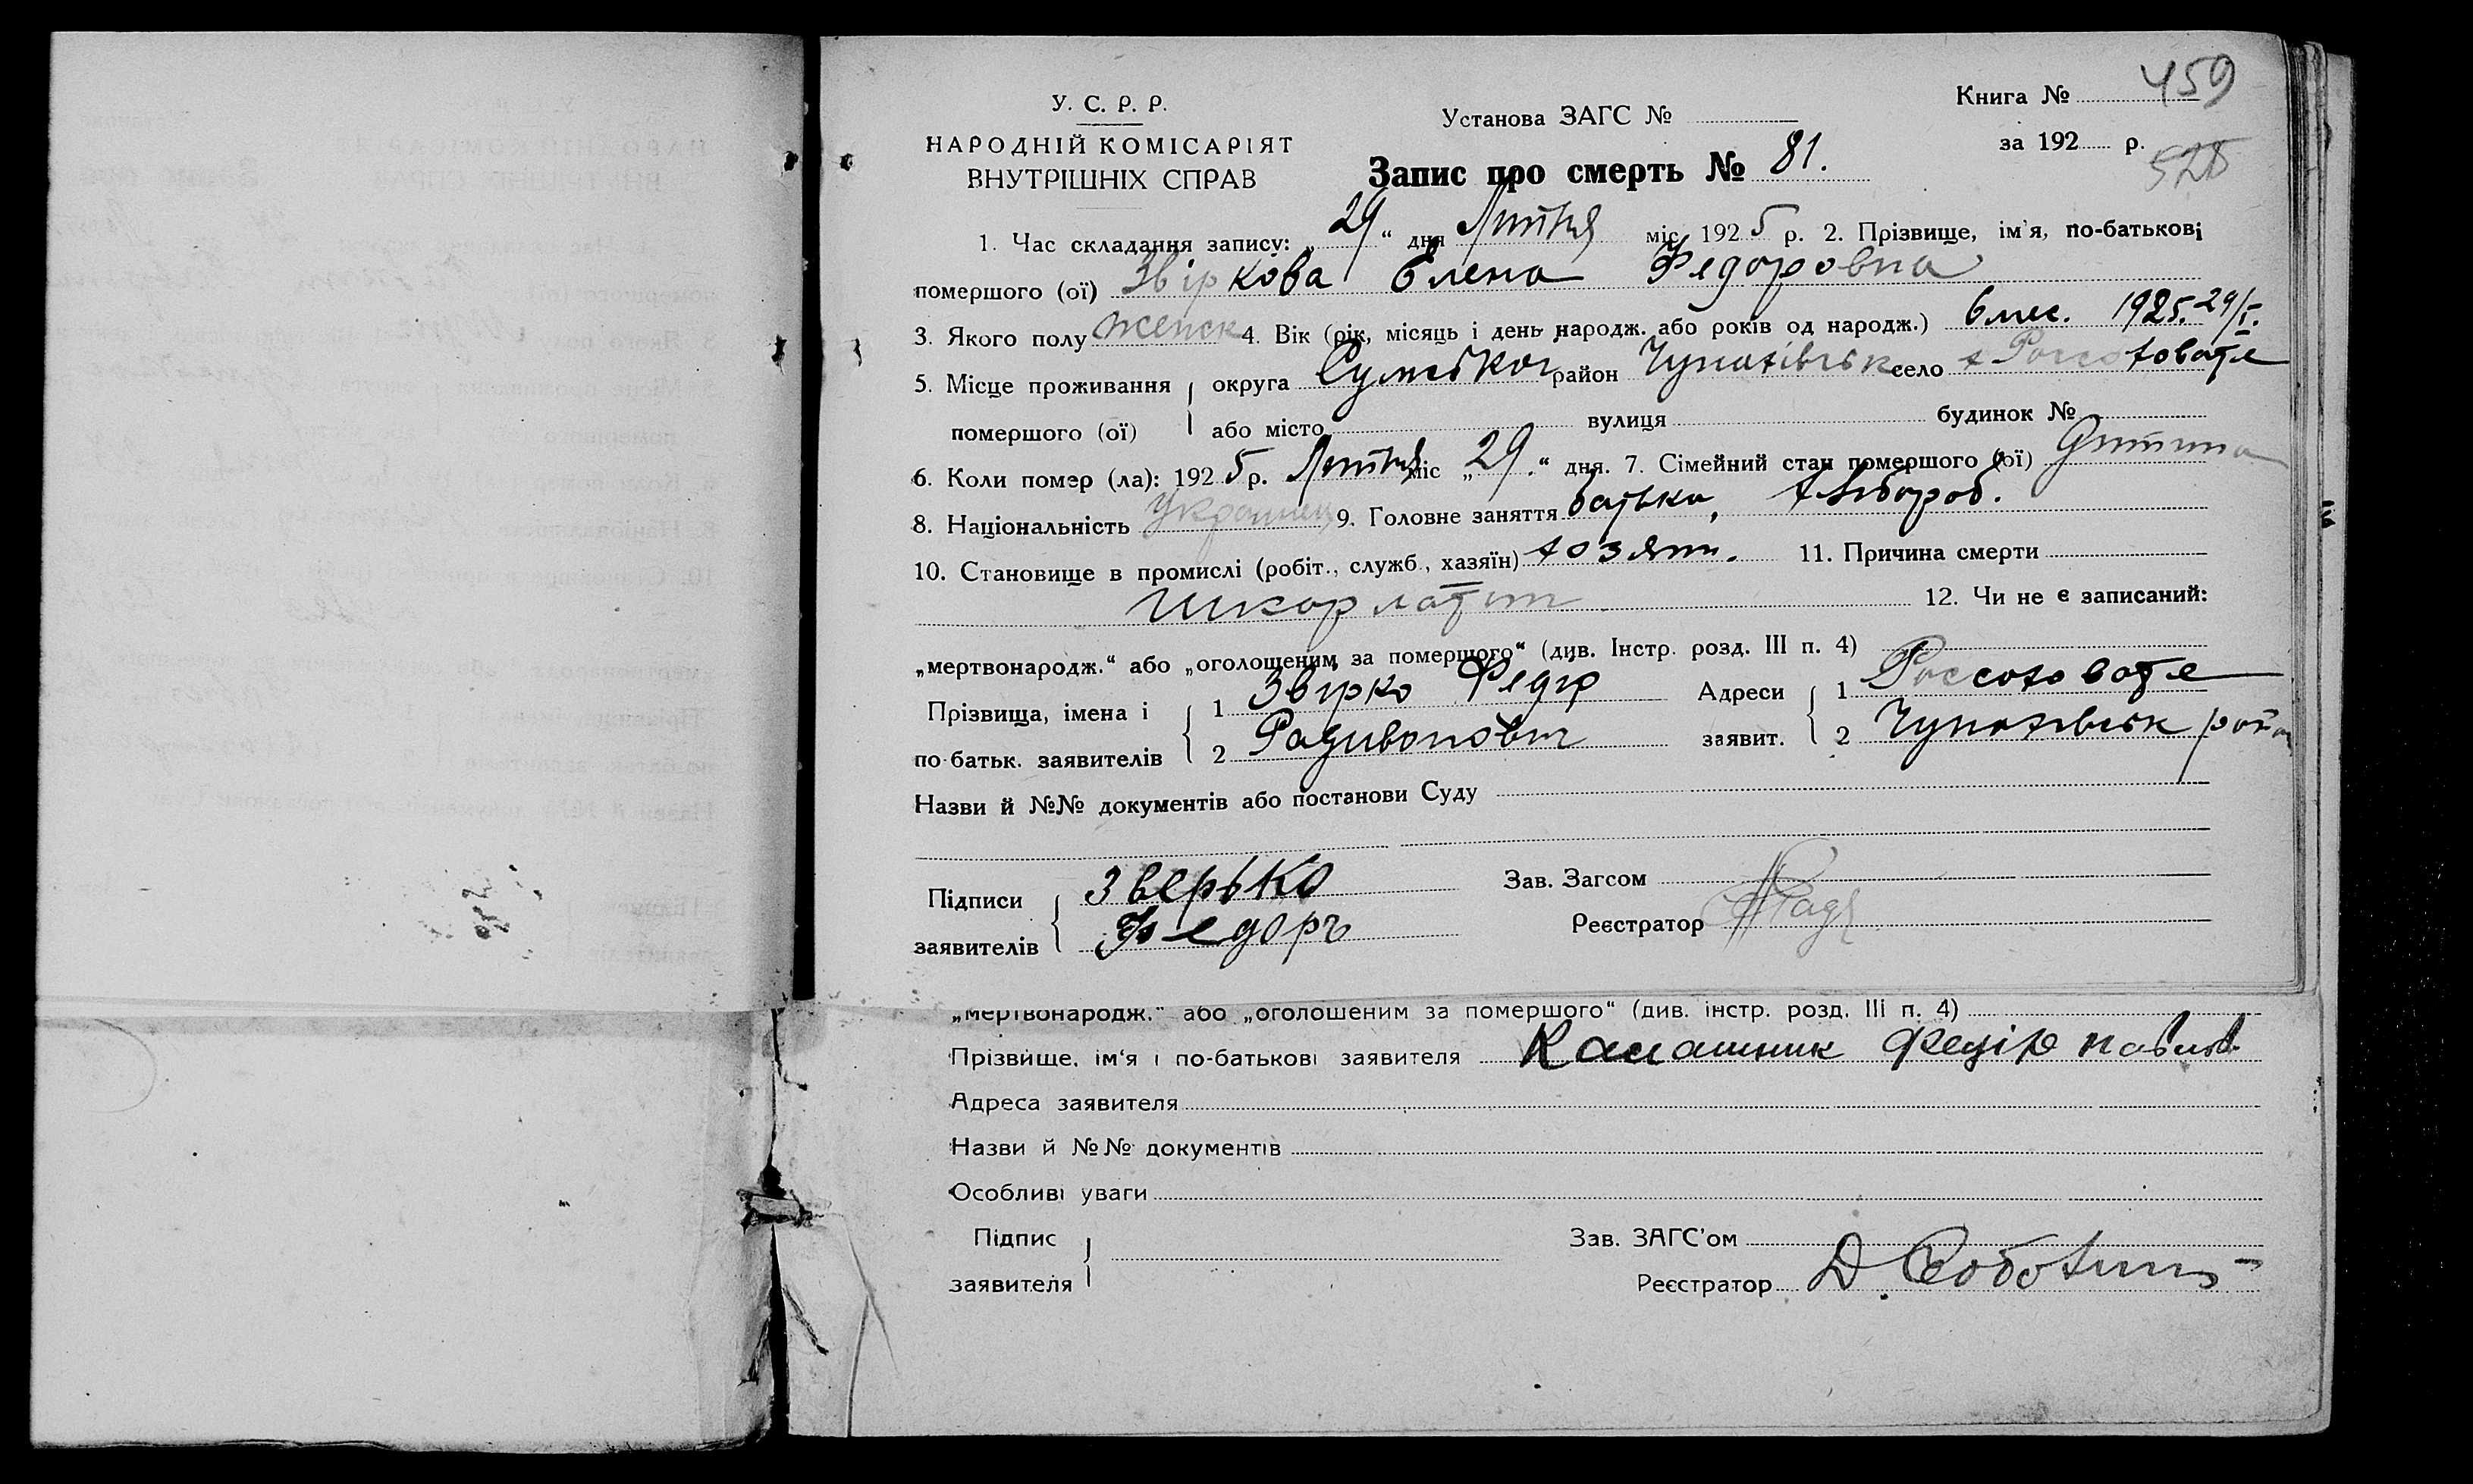 У. С. Р. Р.
НАРОДНІЙ КОМІСАРІЯТ
ВНУТРІШНІХ СПРАВ
Установа ЗАГС №
Книга № 459
за 192 р.
Запис про смерть № 81.
1. Час складання запису: „29“ дня Литня міс. 1925 р. 2. Прізвище, ім'я, по-батькові
помершого (ої) Звіркова Елена Федоровна
3. Якого полу женск 4. Вік (рік, місяць і день народж. або років од народж.) 6 мес. 1925. 29/I.
5. Місце проживання округа Сумськог район Чупахівськ село х Россоховате
помершого (ої) або місто вулиця будинок №
6. Коли помер (ла): 1925 р. Литня міс „29.“ дня. 7. Сімейний стан помершого (ої) Дитина
8. Національність Украинец 9. Головне заняття батька, хлібороб.
10. Становище в промислі (робіт., служб., хазяїн) хозяин. 11. Причина смерти
шкарлатин 12. Чи не є записаний:
„мертвонародж.“ або „оголошеним за померщого“ (див. Інстр. розд. III п. 4)
Прізвища, імена і 1 Звирко Федір Адреси 1 Россоховате
по батьк. заявителів 2 Радивонович заявит. 2 Чупахівськ район
Назви й №№ документів або постанови Суду
Підписи Зверько Зав. Загсом
заявителів Федоръ Реєстратор
„мертвонародж.“ або „оголошеним за помершого“ (див. інстр. розд. III п. 4)
Прізвище, ім'я і по-батькові заявителя Калашник Федір Павлов.
Адреса заявителя
Назви й №№ документів
Особливі уваги
Підпис Зав. ЗАГС'ом
заявителя Реєстратор Д.